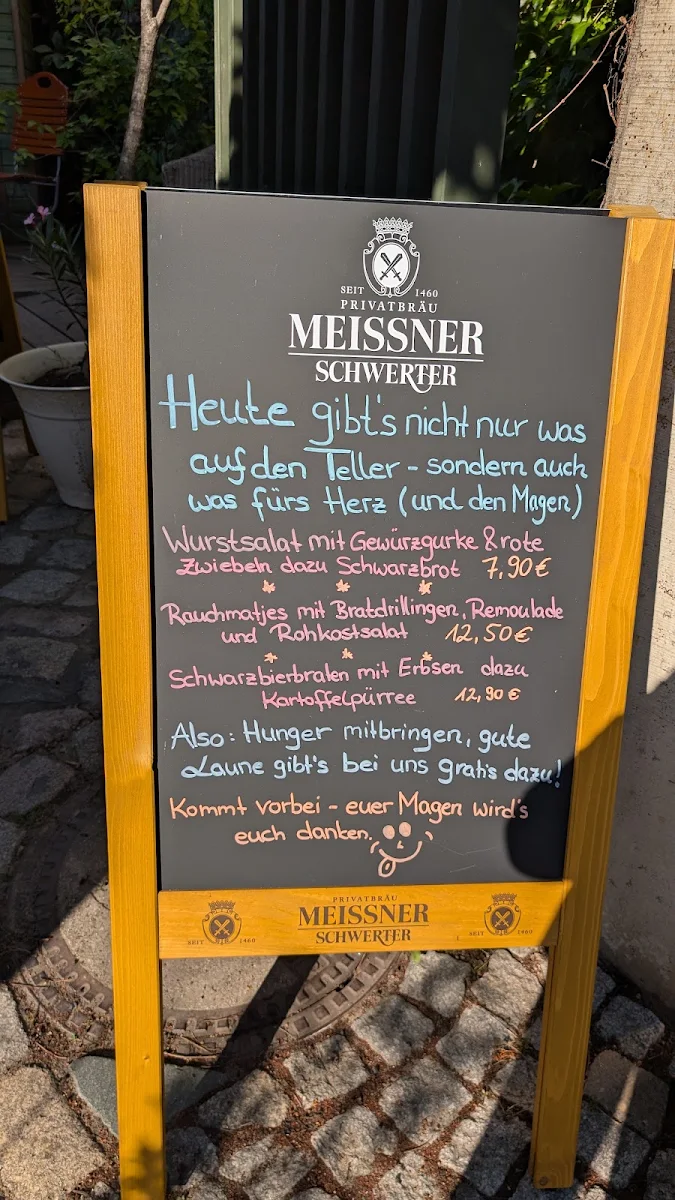 SEIT 1460
PRIVATBRÄU
MEISSNER
SCHWERTER
Heute gibt's nicht nur was
auf den Teller - sondern auch
was fürs Herz (und den Magen)
Wurstsalat mit Gewürzgurke & rote
Zwiebeln dazu Schwarzbrot 7,90€
Rauchmatjes mit Bratdrillingen, Remoulade
und Rohkostsalat 12,50€
Schwarzbierbraten mit Erbsen dazu
Kartoffelpürree 12,90€
Also: Hunger mitbringen, gute
Laune gibt's bei uns gratis dazu!
Kommt vorbei - euer Magen wird's
euch danken.
PRIVATBRÄU
MEISSNER
SCHWERTER
SEIT 1460
SEIT 1460